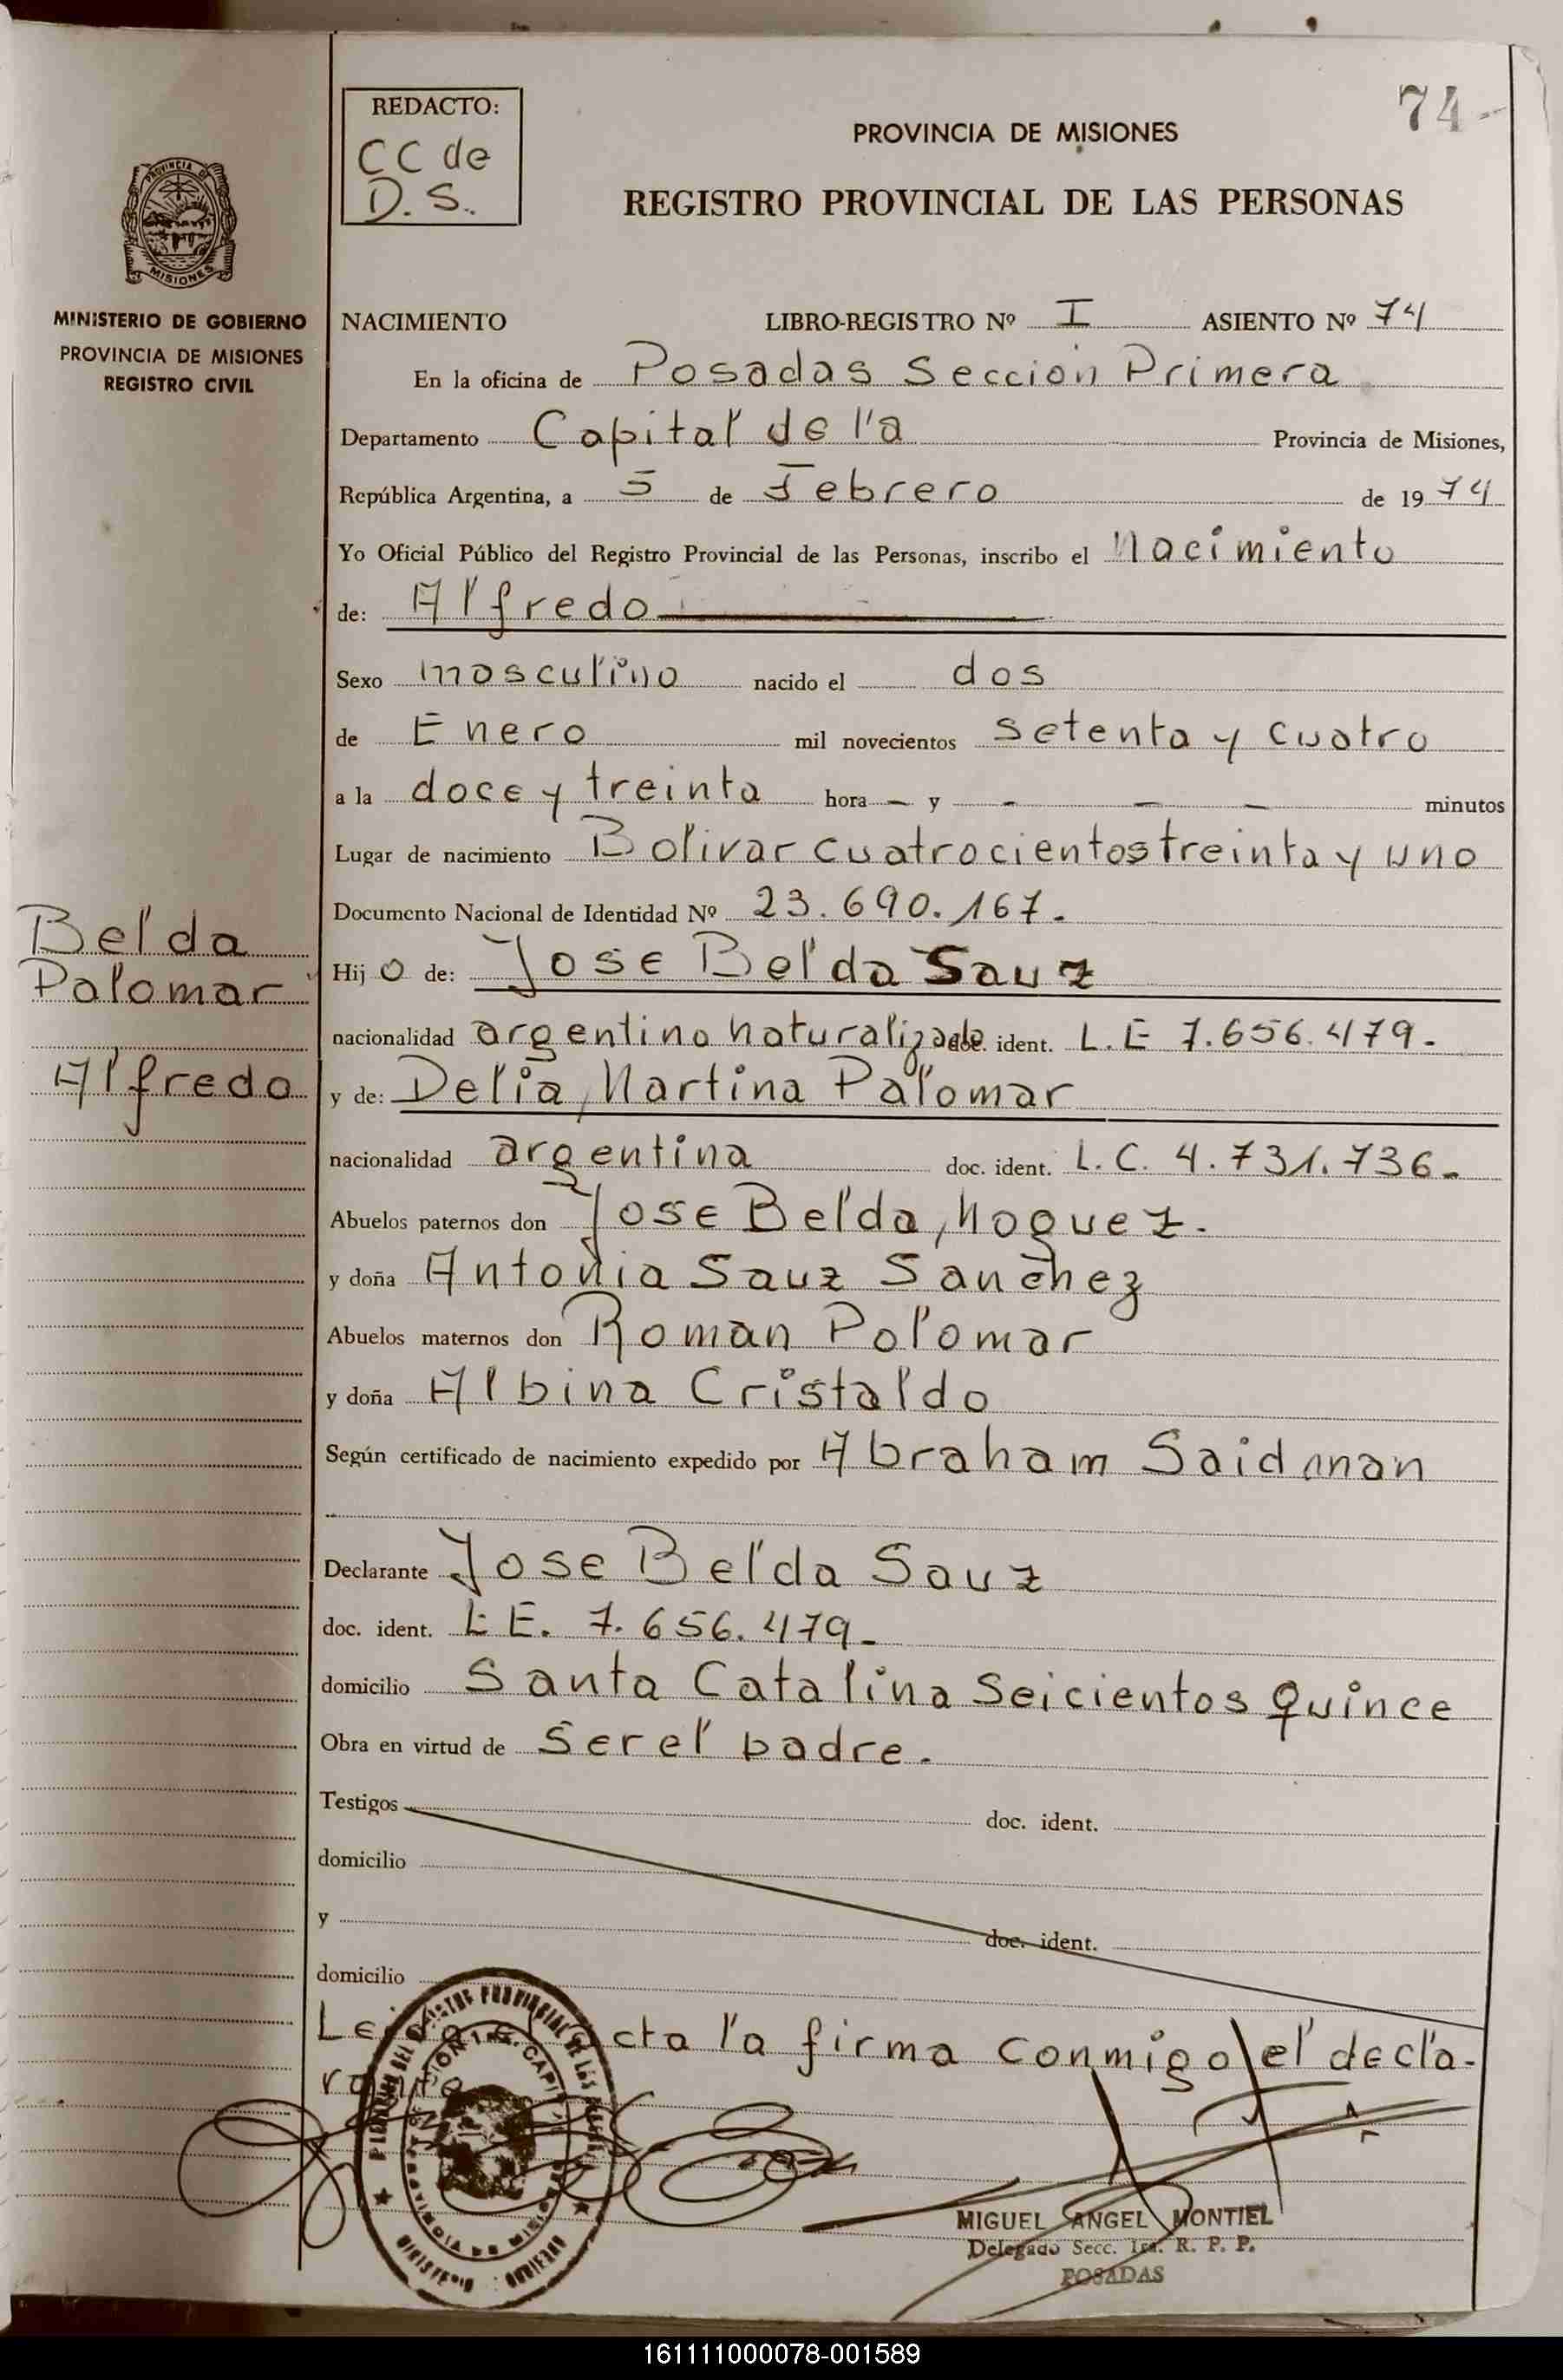 74-
REDACTO:
CC de
D. S.
PROVINCIA DE MISIONES
REGISTRO PROVINCIAL DE LAS PERSONAS
PROVINCIA DE
MISIONES
MINISTERIO DE GOBIERNO
PROVINCIA DE MISIONES
REGISTRO CIVIL
NACIMIENTO LIBRO-REGISTRO Nº I ASIENTO Nº 74
En la oficina de Posadas Sección Primera
Departamento Capital de la Provincia de Misiones,
República Argentina, a 5 de Febrero de 1974
Yo Oficial Público del Registro Provincial de las Personas, inscribo el Nacimiento
de: Alfredo
Sexo masculino nacido el dos
de Enero mil novecientos setenta y cuatro
a la doce y treinta hora - y - - - minutos
Lugar de nacimiento Bolivar cuatrocientos treinta y uno
Documento Nacional de Identidad Nº 23.690.167.
Belda
Palomar
Alfredo
Hijo de: Jose Belda Sauz
nacionalidad argentino naturalizado doc. ident. L.E 7.656.479.
y de: Delia Martina Palomar
nacionalidad argentina doc. ident. L.C. 4.731.736.
Abuelos paternos don Jose Belda Moguez.
y doña Antonia Sauz Sanchez
Abuelos maternos don Roman Palomar
y doña Albina Cristaldo
Según certificado de nacimiento expedido por Abraham Saidman
Declarante Jose Belda Sauz
doc. ident. L E. 7.656.479.
domicilio Santa Catalina Seicientos quince
Obra en virtud de Ser el padre.
Testigos doc. ident.
domicilio
y doc. ident.
domicilio
acta la firma conmigo el decla-
MIGUEL ANGEL MONTIEL
Delegado Secc. 1ra. R. P. P.
POSADAS
161111000078-001589